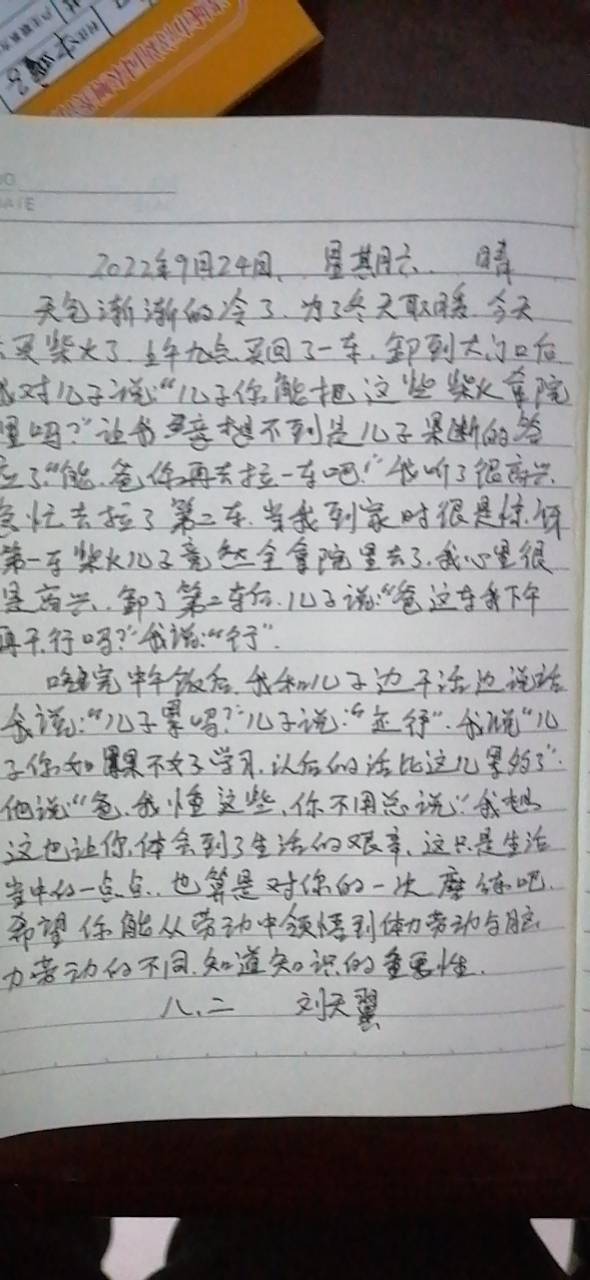 2022年9月24日、 星期六. 晴
天气渐渐的冷了.为了冬天取暖.今天
去买柴火了.上午九点买回了一车.卸到大门口后
我对儿子说:“儿子你能把这些柴火拿院
里吗?”让我意想不到是儿子果断的答
应了:“能.爸你再去拉一车吧!”我听了很高兴.
急忙去拉了第二车.当我到家时很是惊讶
第一车柴火儿子竟然全拿院里去了.我心里很
是高兴.卸了第二车后.儿子说:“爸这车我下午
再干.行吗?”我说:“行”.
吃完中午饭后.我和儿子边干活边说话
我说:“儿子累吗?”儿子说:“还行”.我说“儿
子你如果不好好学习.以后的活比这儿累多了”.
他说“爸.我懂这些.你不用总说.”我想
这也让你.体会到了生活的艰辛.这只是生活
当中的一点点.也算是对你的一次磨练吧.
希望你能从劳动中领悟到体力劳动与脑
力劳动的不同.知道知识的重要性.
八.二 刘天翼